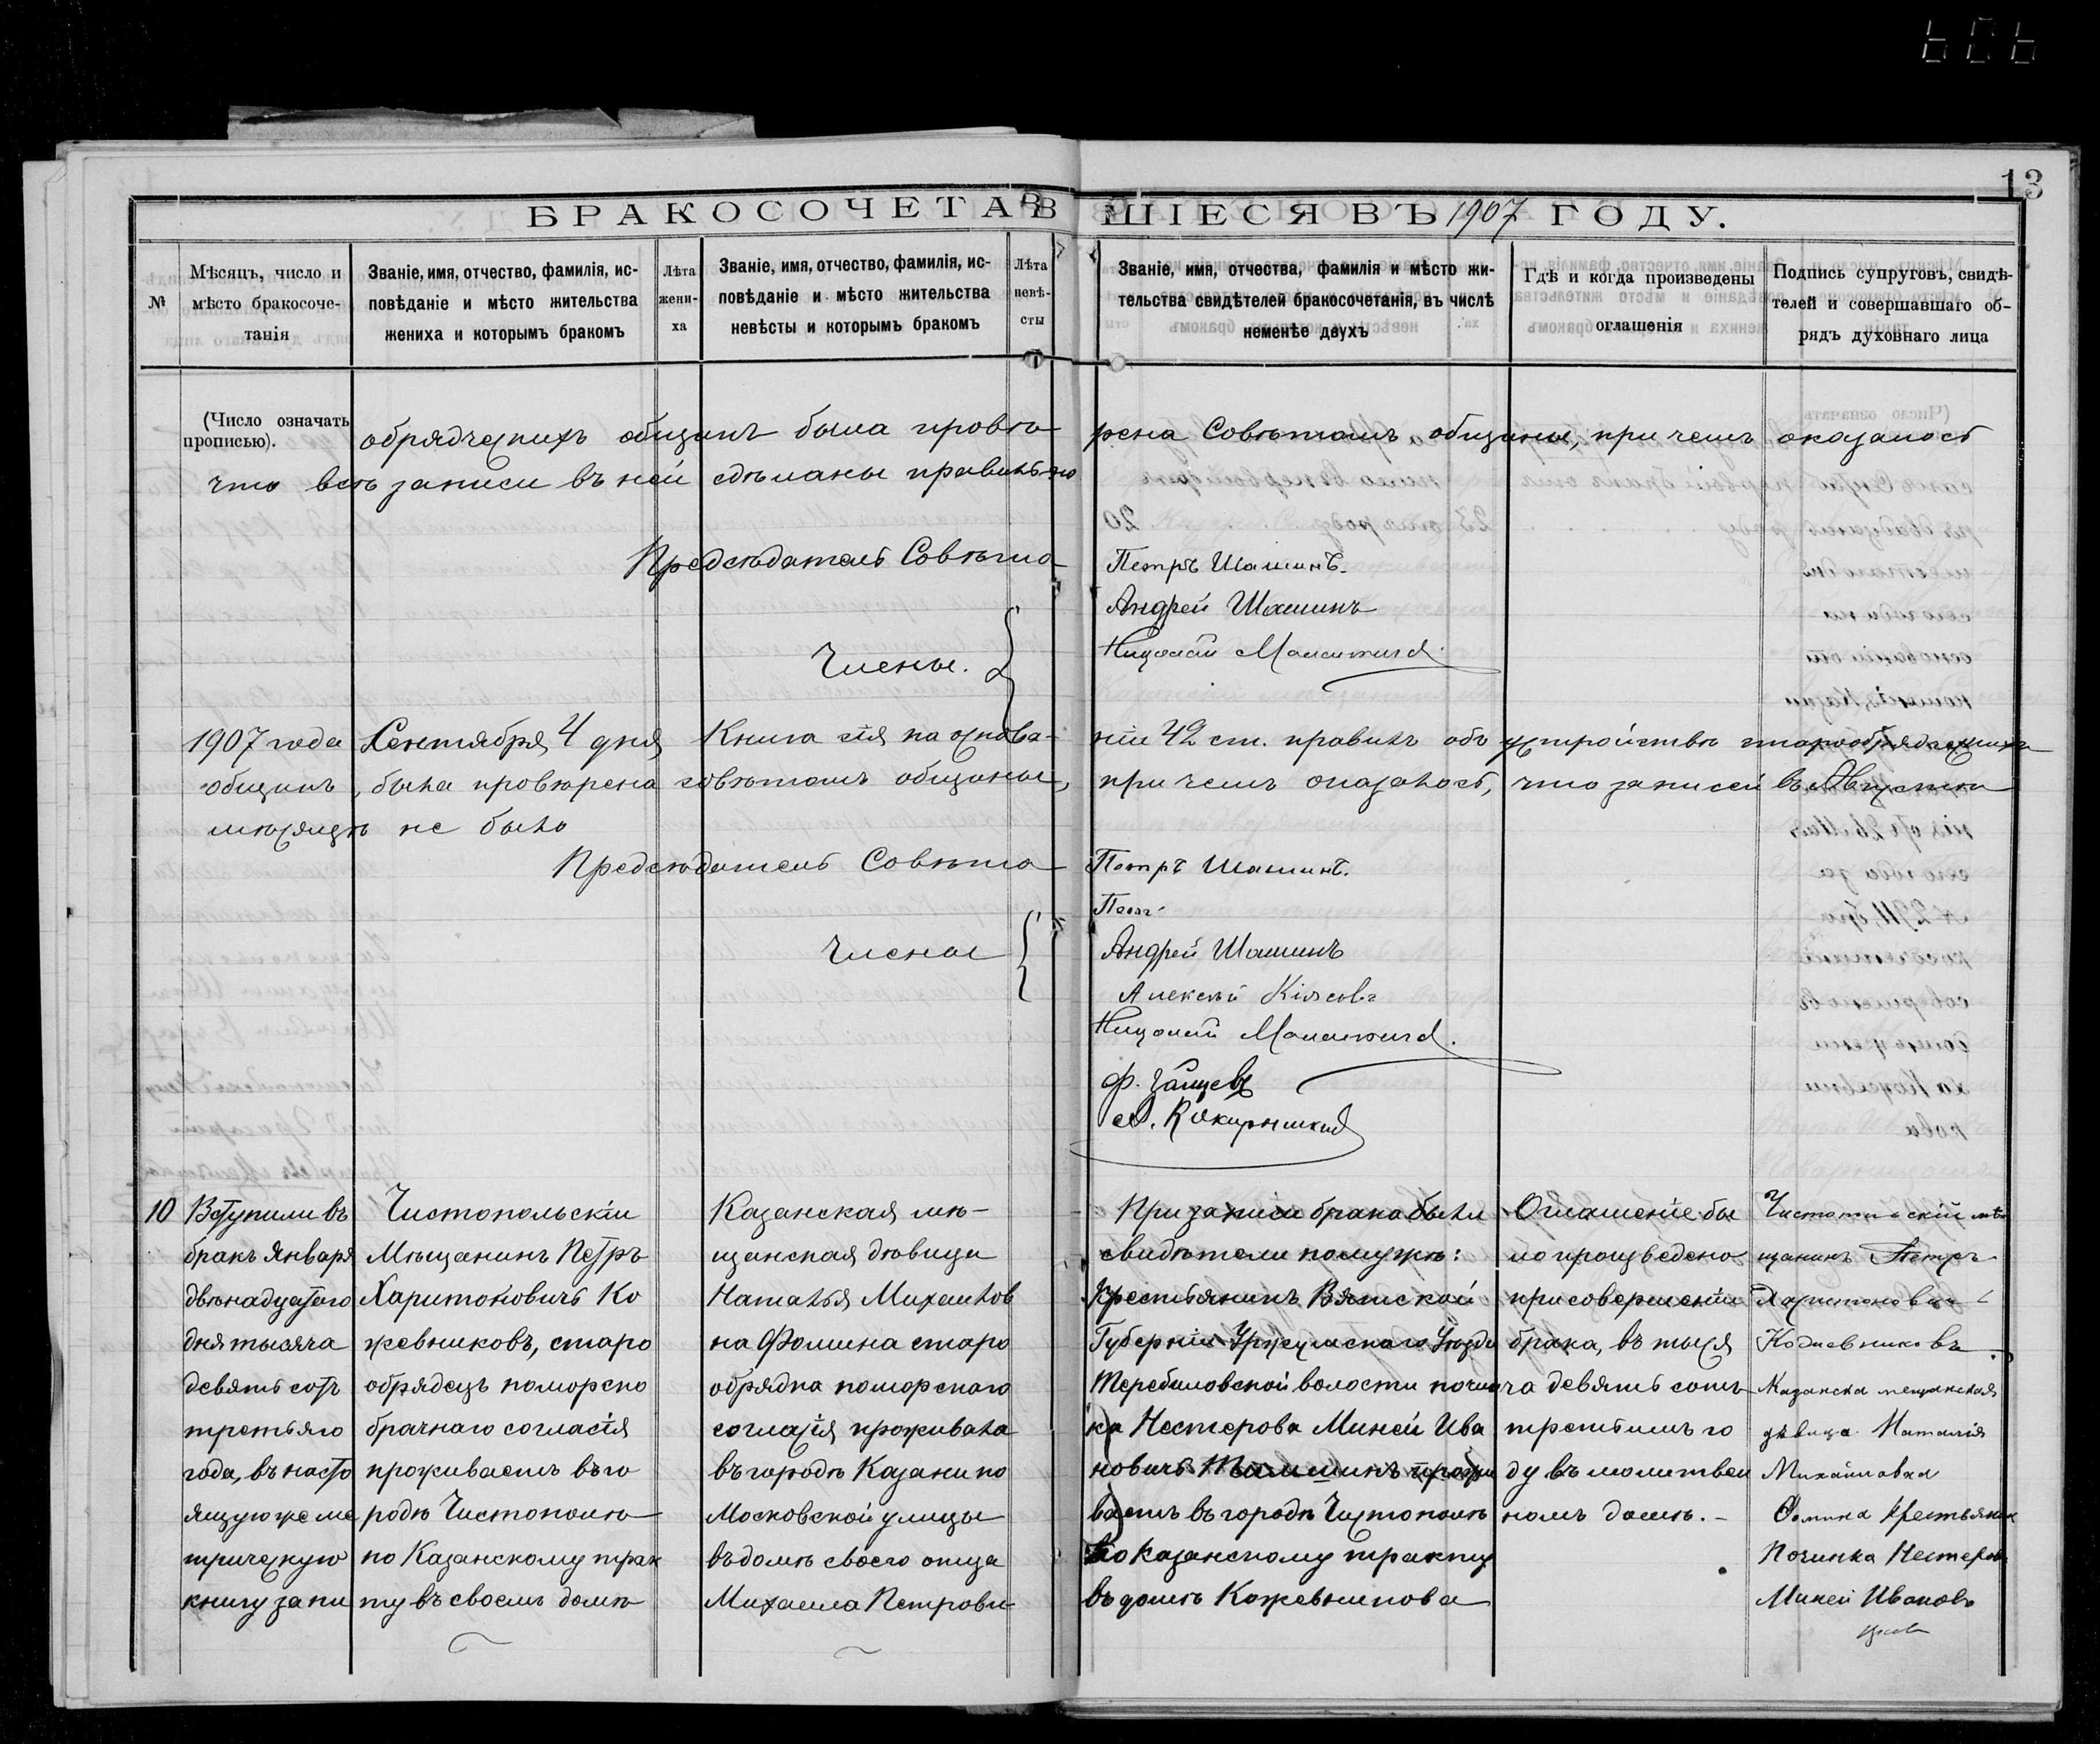 13
БРАКОСОЧЕТАВШІЕСЯ ВЪ 1907 ГОДУ.
№
Мѣсяцъ, число и
мѣсто бракосоче-
танія
Званіе, имя, отчество, фамилія, ис-
повѣданіе и мѣсто жительства
жениха и которымъ бракомъ
Лѣта
жени-
ха
Званіе, имя, отчество, фамилія, ис-
повѣданіе и мѣсто жительства
невѣсты и которымъ бракомъ
Лѣта
невѣ-
сты
Званіе, имя, отчества, фамилія и мѣсто жи-
тельства свидѣтелей бракосочетанія, въ числѣ
неменѣе двухъ
Гдѣ и когда произведены
оглашенія
Подпись супруговъ, свидѣ-
телей и совершавшаго об-
рядъ духовнаго лица
(Число означать
прописью).
обрядческихъ общинъ была провѣрена Совѣтомъ общины, при чемъ оказалось
что всѣ записи въ ней сдѣланы правильно
Предсѣдатель Совѣта Петръ Шашинъ.
Андрей Шашинъ
Члены.
1907 года Сентября 4 дня Книга сія на основа-ніи 42 ст. правилъ объ устройствѣ старообрядческихъ
общинъ, была провѣрена совѣтомъ общины, при чемъ оказалось, что записей въ Августѣ
мѣсяцѣ не было
Предсѣдатель Совѣта Петръ Шашинъ.
Члены
Андрей Шашинъ
Алексѣй
10
Вступили въ
бракъ Января
двѣнадцатого
дня тысяча
девять сотъ
третьяго
года, въ насто
ящую же ме
трическую
книгу запи
Чистопольскій
Мѣщанинъ Петръ
Харитоновичъ Ко
жевниковъ, старо
обрядецъ поморско
брачнаго согласія
проживаетъ въ го
родѣ Чистополѣ
по Казанскому трак
ту въ своемъ домѣ
Казанская мѣ-
щанская дѣвица
Наталья Михайлов
на Фомина старо
обрядка поморскаго
согласія проживала
въ городѣ Казани по
Московской улицы
въ домѣ своего отца
Михаила Петрови
При записи брака были
свидѣтели по мужѣ:
Крестьянинъ Вятской
Губерніи Уржумскаго Уѣзда
Теребиловской волости почин
ка Нестерова Миней Ива
новичъ прожи
ваетъ въ городѣ Чистополѣ
по Казанскому тракту
въ домѣ Кожевникова
Оглашеніе бы
ло произведено
при совершеніи
брака, въ тыся
ча девять сотъ
третьимъ го
ду въ молитвен
номъ домѣ.-
Чистопольскій мѣ
щанинъ Петръ
Харитоновичъ
Кожевниковъ
Казанска мещанская
дѣвица Наталія
Михайловна
Фомина Крестьянин
Починка Нестерова
Миней Ивановъ